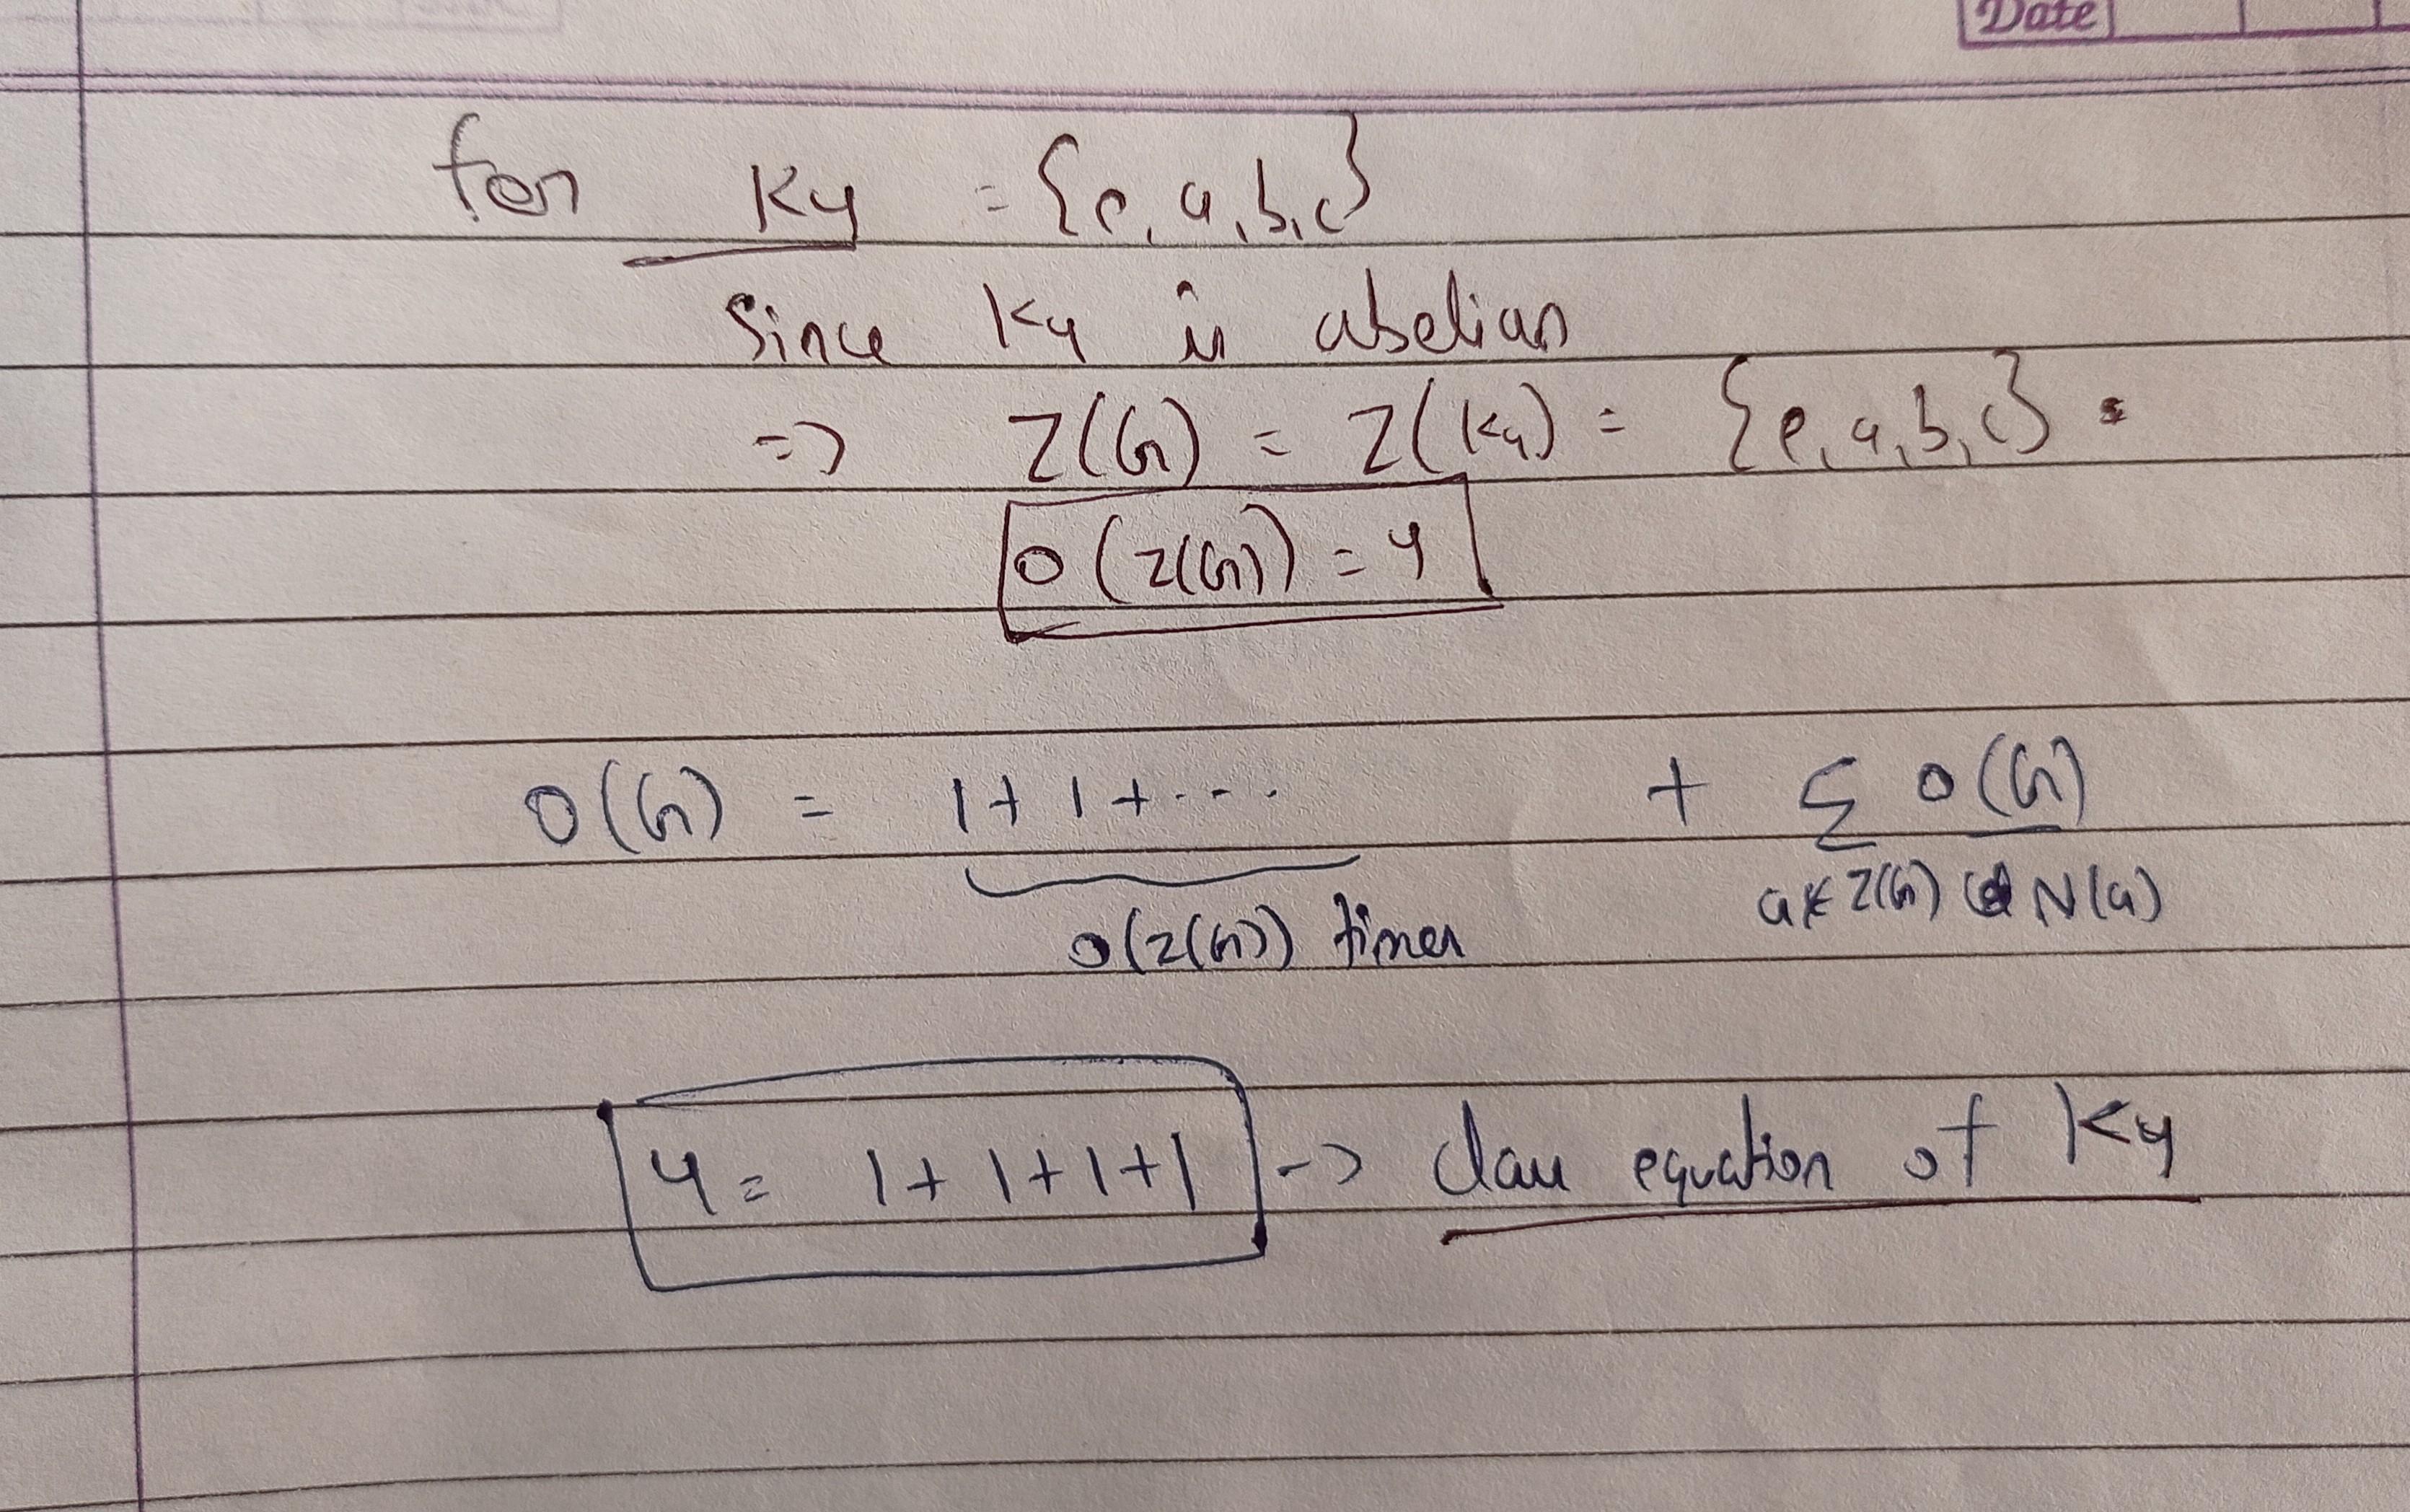 Date
for K4 = {e, a, b, c}
Since K4 is abelian
=> Z(G) = Z(K4) = {e, a, b, c}
O(Z(G)) = 4
O(G) = 1 + 1 + ... + Σ O(G)
a∉Z(G) N(a)
O(Z(G)) times
4 = 1 + 1 + 1 + 1 -> class equation of K4